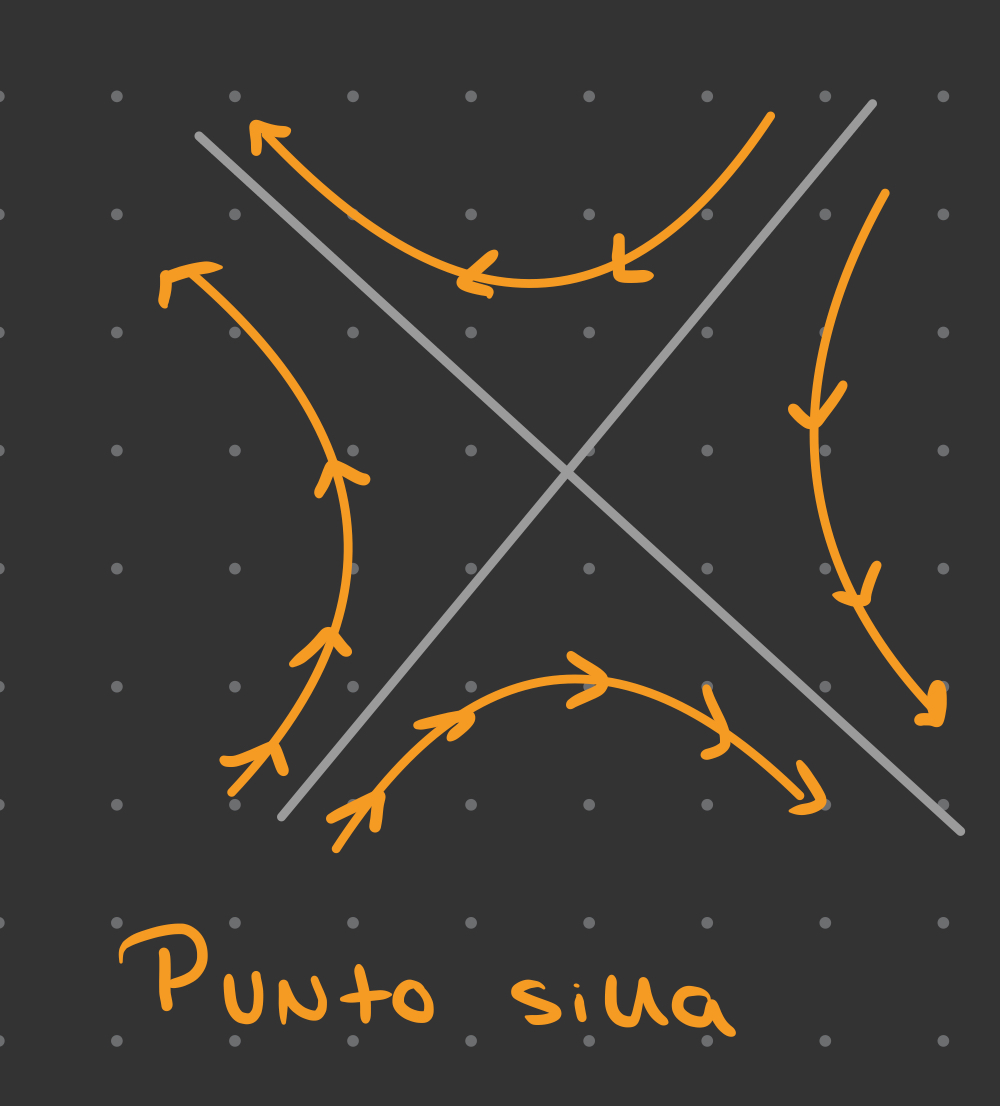 Punto silla